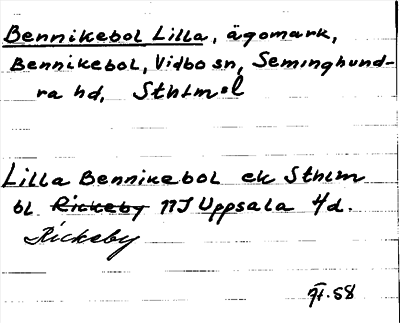 Bennikebol Lilla, ägomark,
Bennikebol, Vidbo sn, Seminghund-
ra hd, Sthlm.l
Lilla Bennikebol ek Sthlm
bl Rickeby 11J Uppsala 4d.
Rickeby